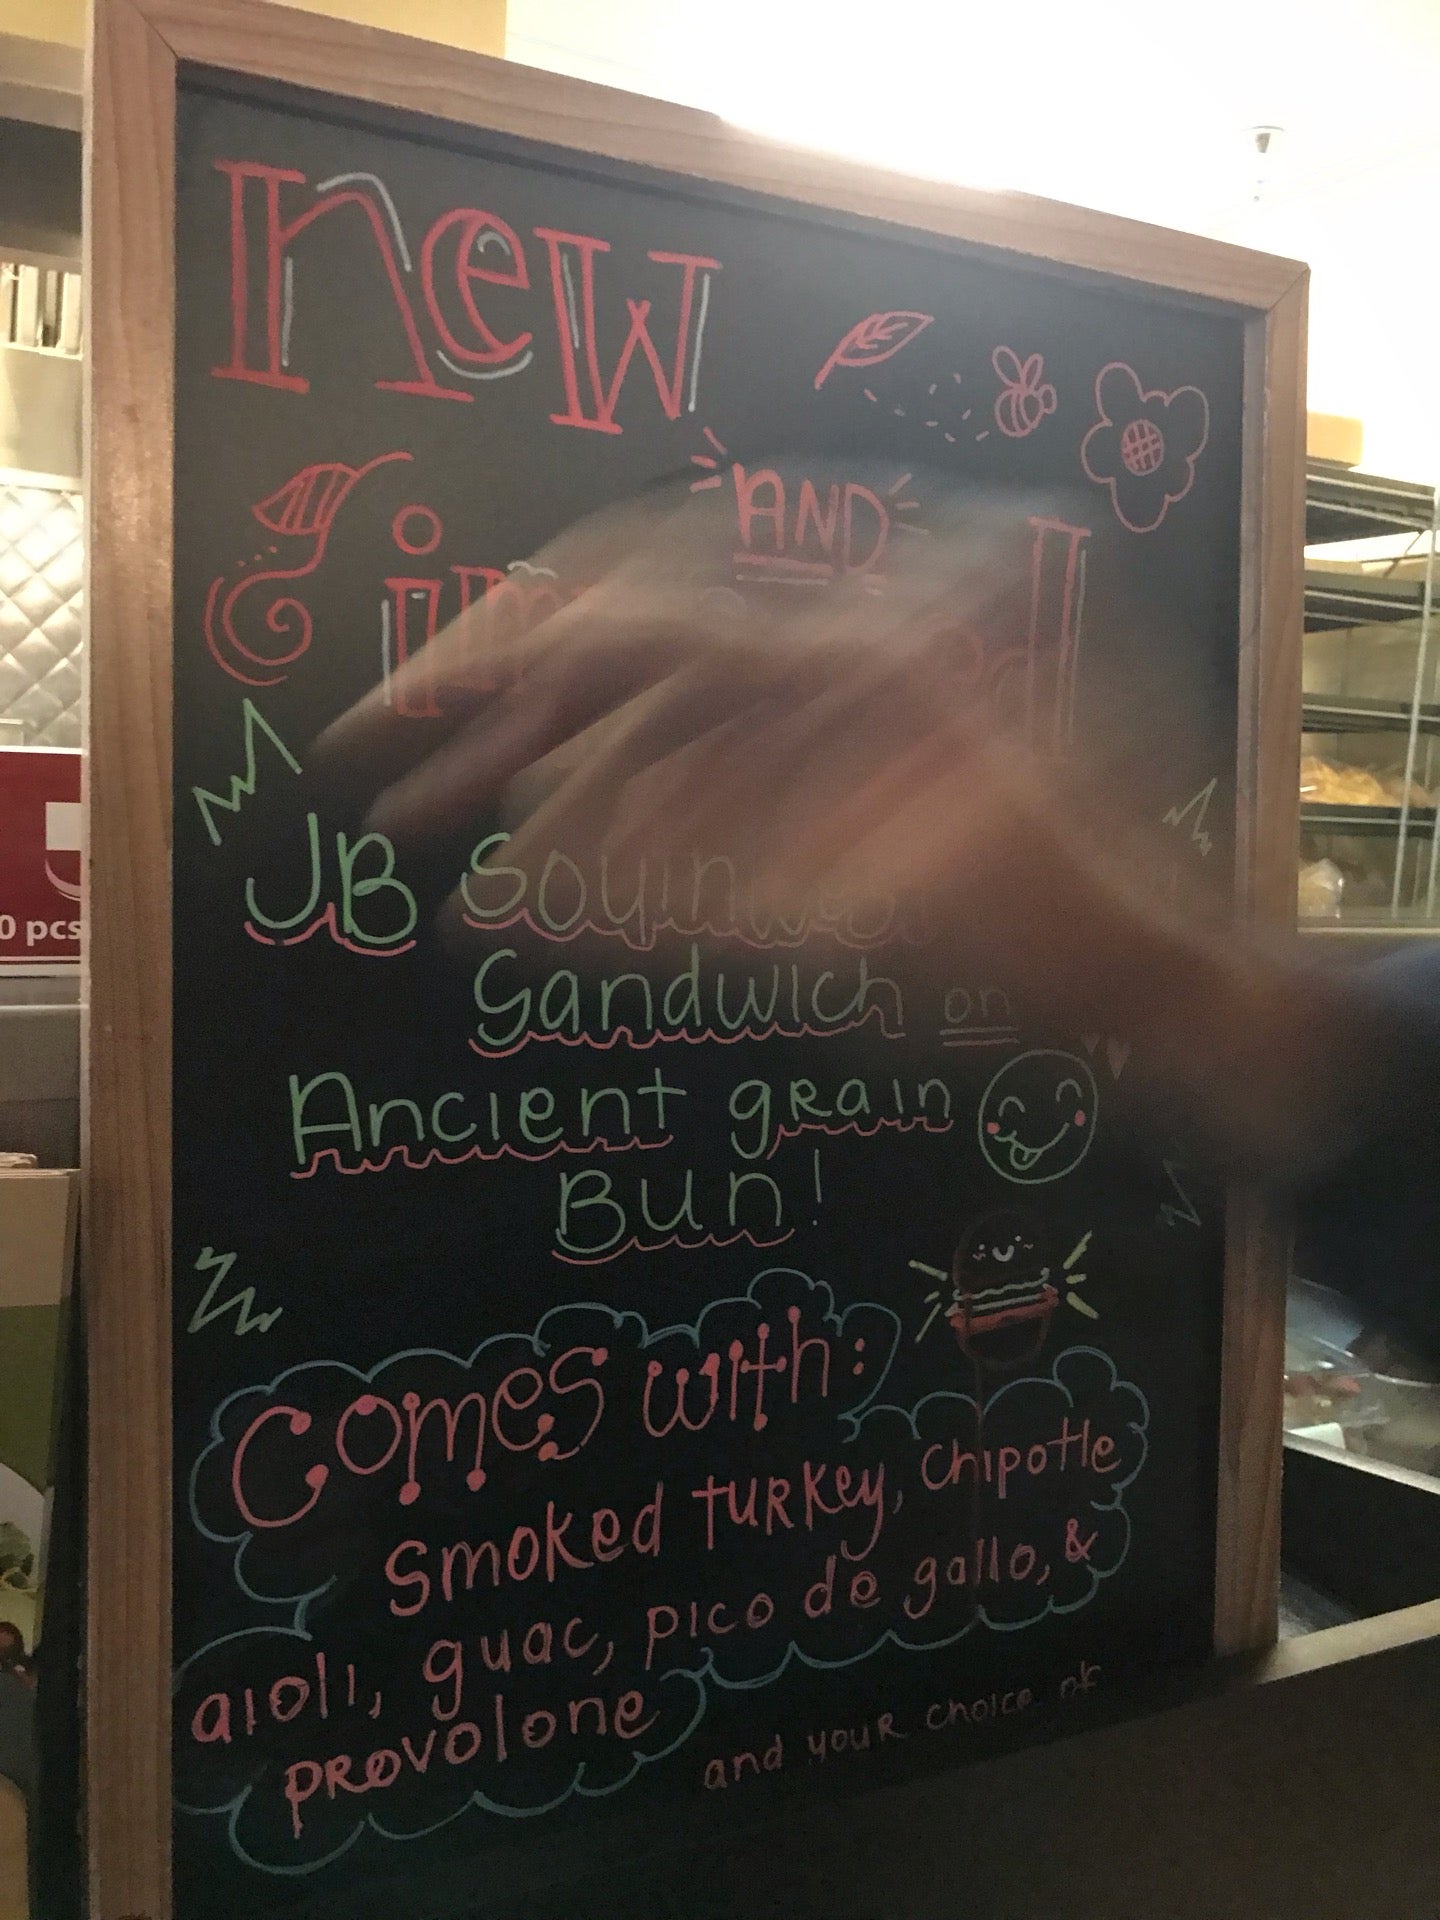 new
AND
JB
Sandwich on
Ancient grain
Bun!
Comes with:
smoked turkey, chipotle
aioli, guac, pico de gallo, &
provolone
and your choice of
0 pcs